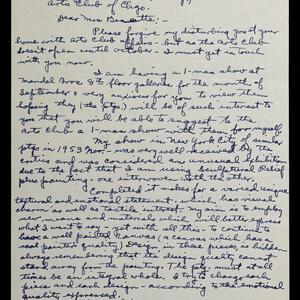 Arts Club of Chgo.
Dear Mrs.
Please forgive my disturbing you at your
home with Arts Club affairs - but as the Arts Club
doesn't open until October - I must get in touch
with you now.
I am having a 1-man show at
Mandel Bros 8th floor galleries for the month of
September & very anxious for you to view them
hoping they (the ptgs) will be of such interest to
you that you will be able to suggest to the
Arts Club a 1-man show with them for myself
My show in New York City of similar
ptgs in 1953 Nov. - was very well received by the
critics and was considered an unusual exhibition
due to the fact that I am using Sculptural Relief
plus painting - one intertwined with other.
Completed it makes for a varied unique
textural and emotional statement - which has visual
charm as well as tactile interest. My aim is to employ
new means and materials which will better express
what I want to say yet with all this - to continue to
have a well painted Canvas (a canvas which has a
real painter quality) Design in these pieces is
always remembering that the design quality cannot
stand away from painting. The ptg. must at all
times be an integral whole. I try to balance each
piece and each design - according to the emotional
quality expressed.